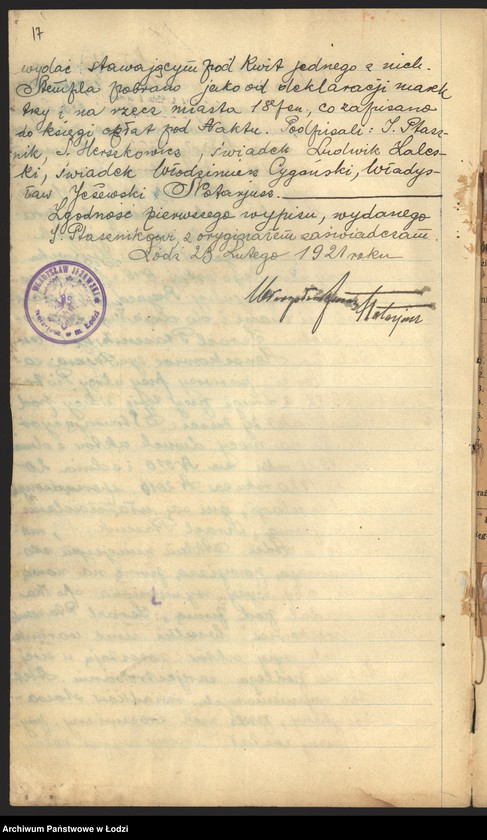 17
wydać stawającym pod kwit jednego z nich.
Stempla pobrano jako od deklaracji mark
trzy i na rzecz miasta 18 fen., co zapisano
do księgi opłat pod N aktu. Podpisali: I. Ptasz-
nik, S. Herszkowicz, świadek Ludwik Zales-
ki, świadek Włodzimierz Cygański, Władys-
ław Jeżewski Notarjusz.
Zgodność pierwszego wypisu, wydanego
I. Ptasznikowi, z oryginałem zaświadczam
Łódź 23 Lutego 1921 roku
WŁADYSŁAW JEŻEWSKI
Notarjusz w m. Łodzi
Notarjusz
Archiwum Państwowe w Łodzi